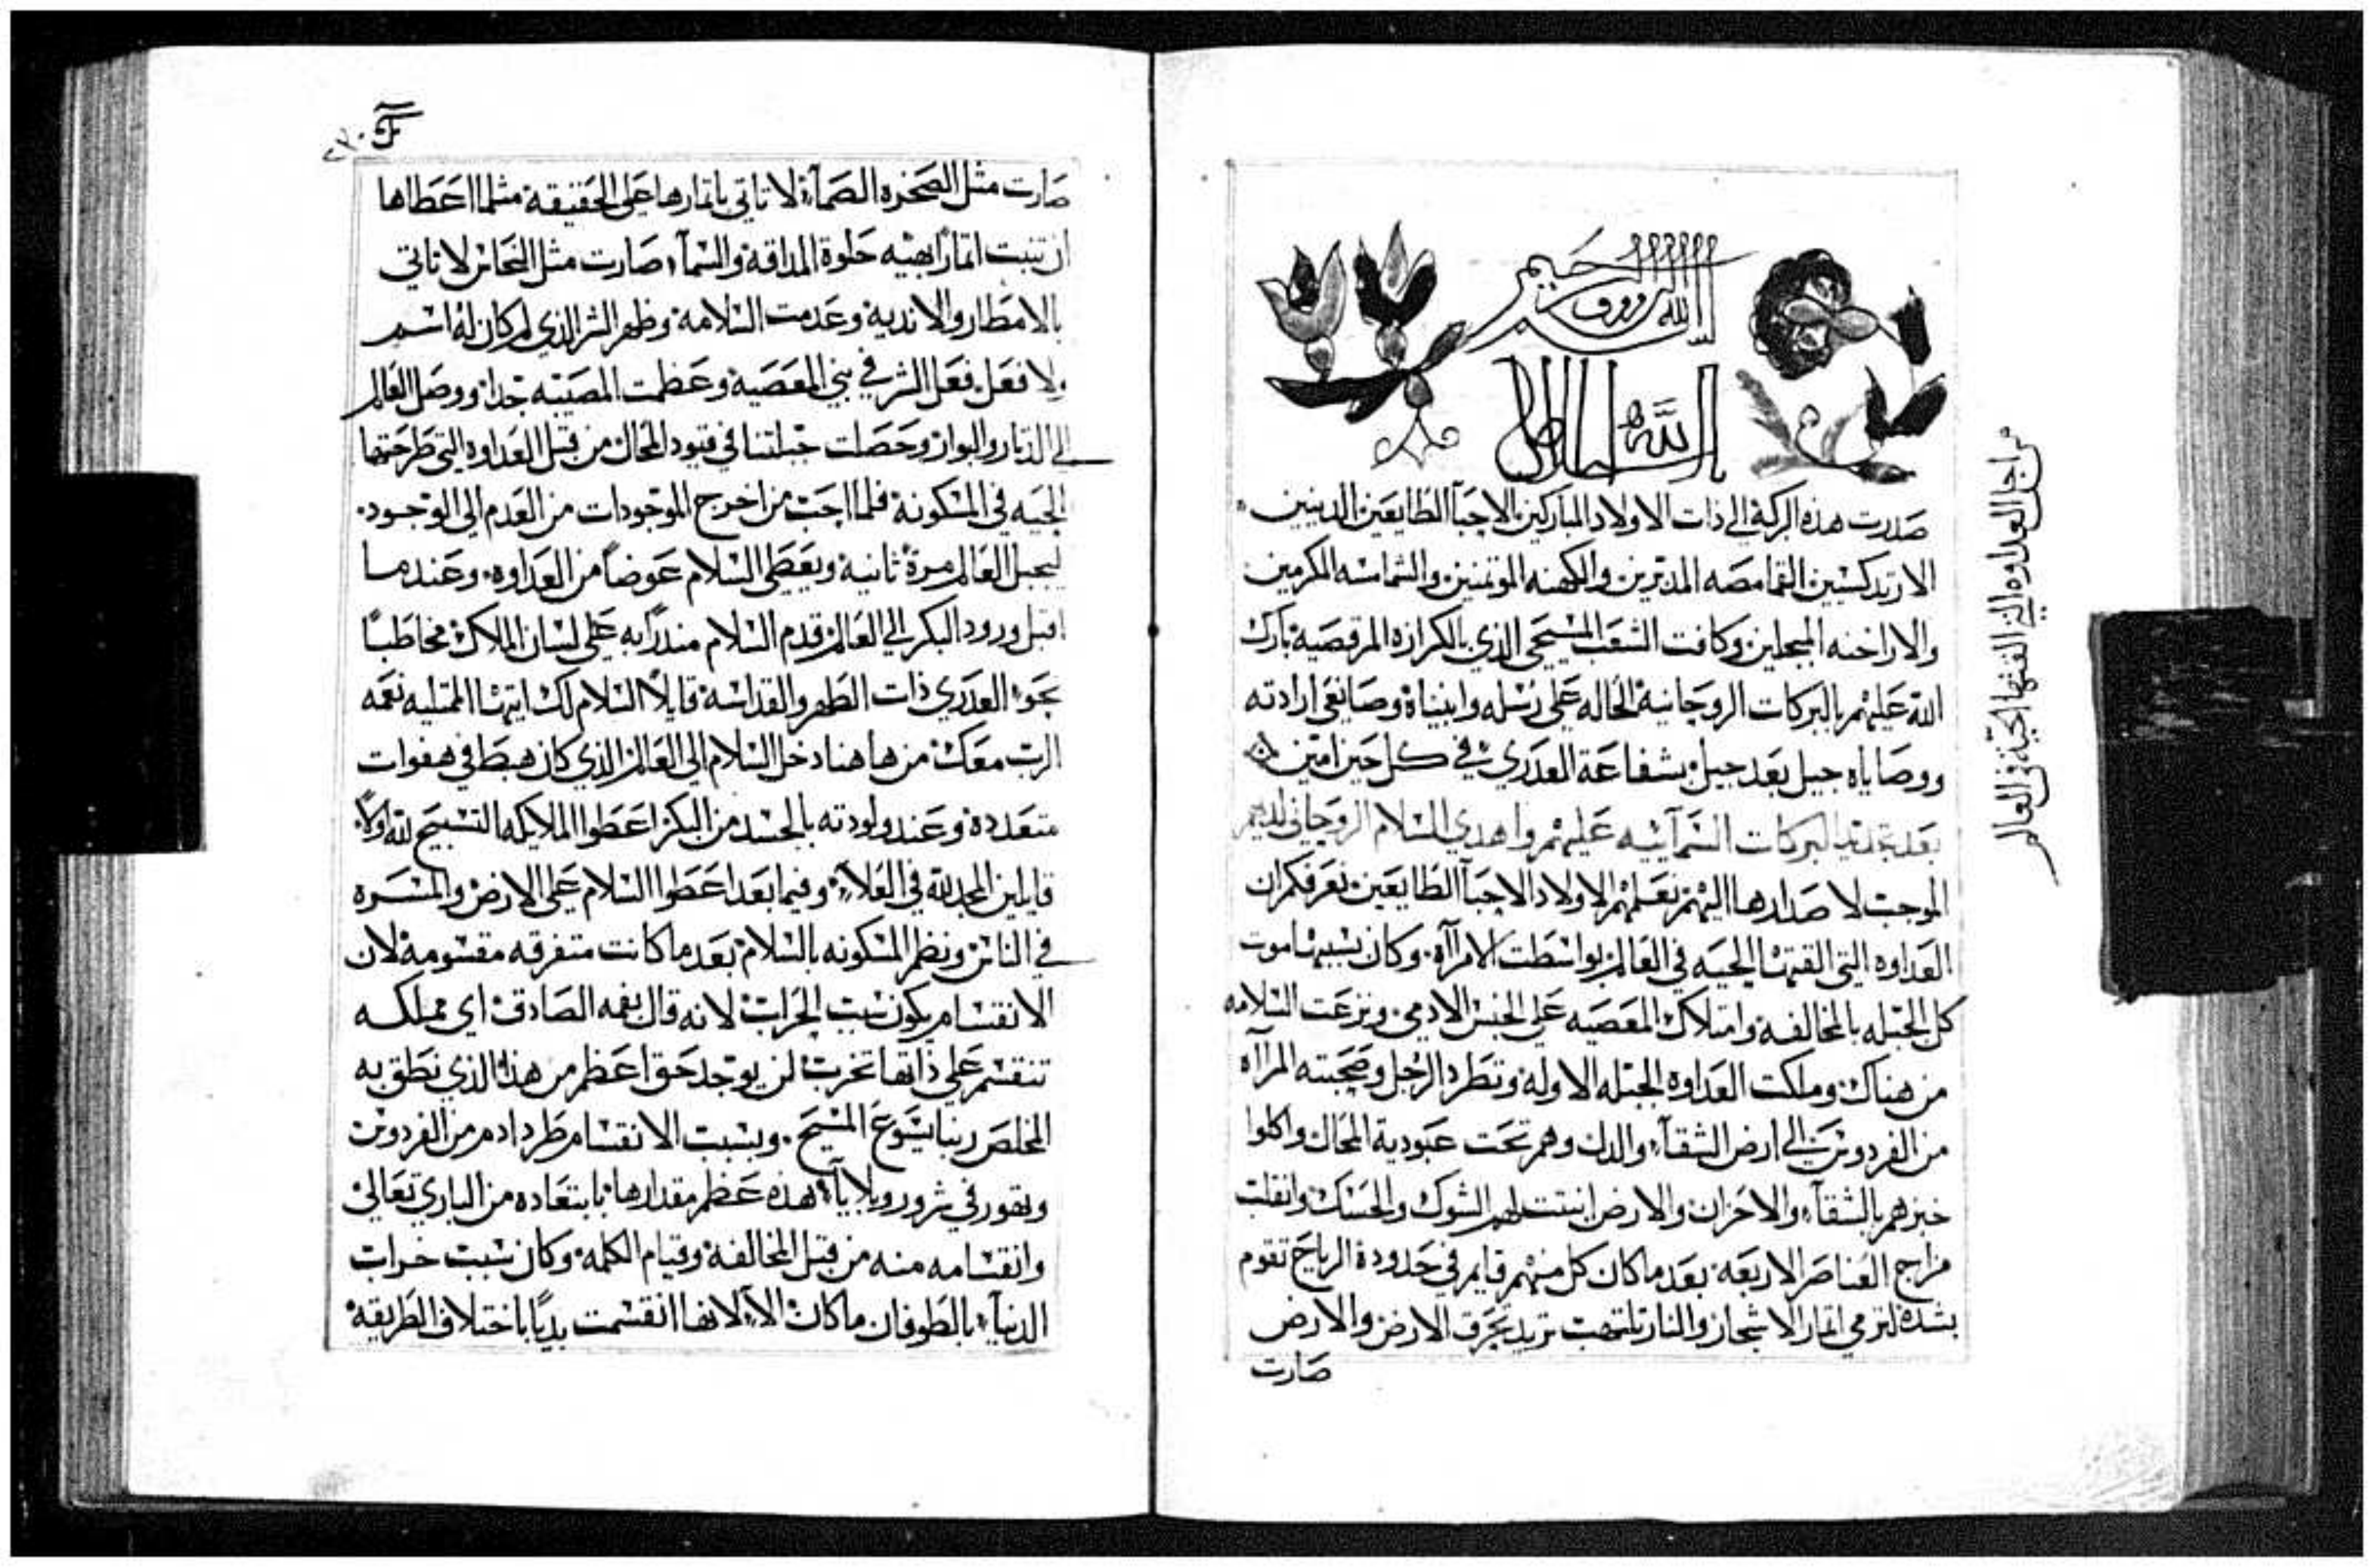 الله الروف الرحيم
بالله السلاطي
صدرت هذه البركة الي ذات الاولاد المباركين الاحبآ الطايعين الدينين
الارتدكسيين القمامصه المدبرين والكهنه الموتمنين والشمامسه المكرمين
والاراخنه المبجلين وكافت الشعب المسيحي الذي بالكرازه المرقصية بارك
الله عليهم بالبركات الروحانية الحاله علي رسله وانبياة وصانعي ارادته
ووصاياه جيل بعد جيل بشفاعة العدري في كل حين امين
بعد تجديد البركات السمآييه عليهم واهدي السلام الروحاني لديهم
الموجب لاصدارها اليهم نعلم الاولاد الاحبآ الطايعين نعرفكم ان
العداوه التي القتها الحيه في العالم بواسطت الامرآه وكان بسببها موت
كل الجبله بالمخالفة وامتلاك المعصيه علي الجنس الادمي ونزعت السلامه
من هناك وملكت العداوة الجبله الاوله وتطرد الرجل وصحبته المرآه
من الفردوس الي ارض الشقآ والدل وهم تحت عبودية المحال واكلوا
خبزهم بالشقآ والاحزان والارض انبتت لهم الشوك والحسك وانقلب
مزاج العناصر الاربعه بعد ما كان كل منهم قايم في حدودة الرياح تقوم
بشدة لترمي اتمار الاشجار والنار تلتهب تريد تحرق الارض والارض
صارت
من اجل العداوه التي القتها الحيّة في العالم
٢٣٠
صارت مثل الصخره الصمآء لا تاتي باتمارها علي الحقيقة مثلما اعطاها
ان تنبت اتمارًا بهيه حلوة المداقة والسمآء صارت مثل النحاس لا تاتي
بالامطار والاندية وعدمت السلامة وظهر الشر الذي لم كان له اسم
ولا فعل فعل الشر في بني المعصية وعظمت المصيبه جدا ووصل العالم
الي الدمار والبوار وحصلت جبلتنا في قيود المحال من قبل العداوة التي طرحتها
الحيه في المسكونة فلما احب من اخرج الموجودات من العدم الي الوجود
ليجبل العالم مرة ثانية ويعطي السلام عوضًا من العداوه وعندما
اقبل ورود البكر الي العالم قدم السلام مندرًا به علي لسان الملاك مخاطبًا
نحوا العدري ذات الطهر والقداسة قايلًا السلام لك ايتها الممتليه نعمه
الرب معك من هاهنا دخل السلام الي العالم الذي كان هبط في هفوات
متعددة وعند ولودته بالجسد من البكر اعطوا الملايكه التسبيح لله اولًا
قايلين المجد لله في العلاء وفيما بعد اعطوا السلام علي الارض والمسره
في الناس ونظم المسكونه بالسلام بعد ما كانت متفرقه مقسومة لان
الانقسام يكون سبب الخراب لانه قال بفمه الصادق اي مملكه
تنقسم علي ذاتها تخرب لن يوجد حق اعظم من هذا الذي نطق به
المخلص ربنا يسوع المسيح وبسبب الانقسام طرد ادم من الفردوس
وتهور في شرور وبلايآ هذه عظم مقدارها بابتعاده من الباري تعالي
وانقسامه منه من قبل المخالفة وقيام الكلمه وكان سبب خراب
الدنيآ بالطوفان ما كان الا لانها انقسمت بديًا باختلاف الطريقة